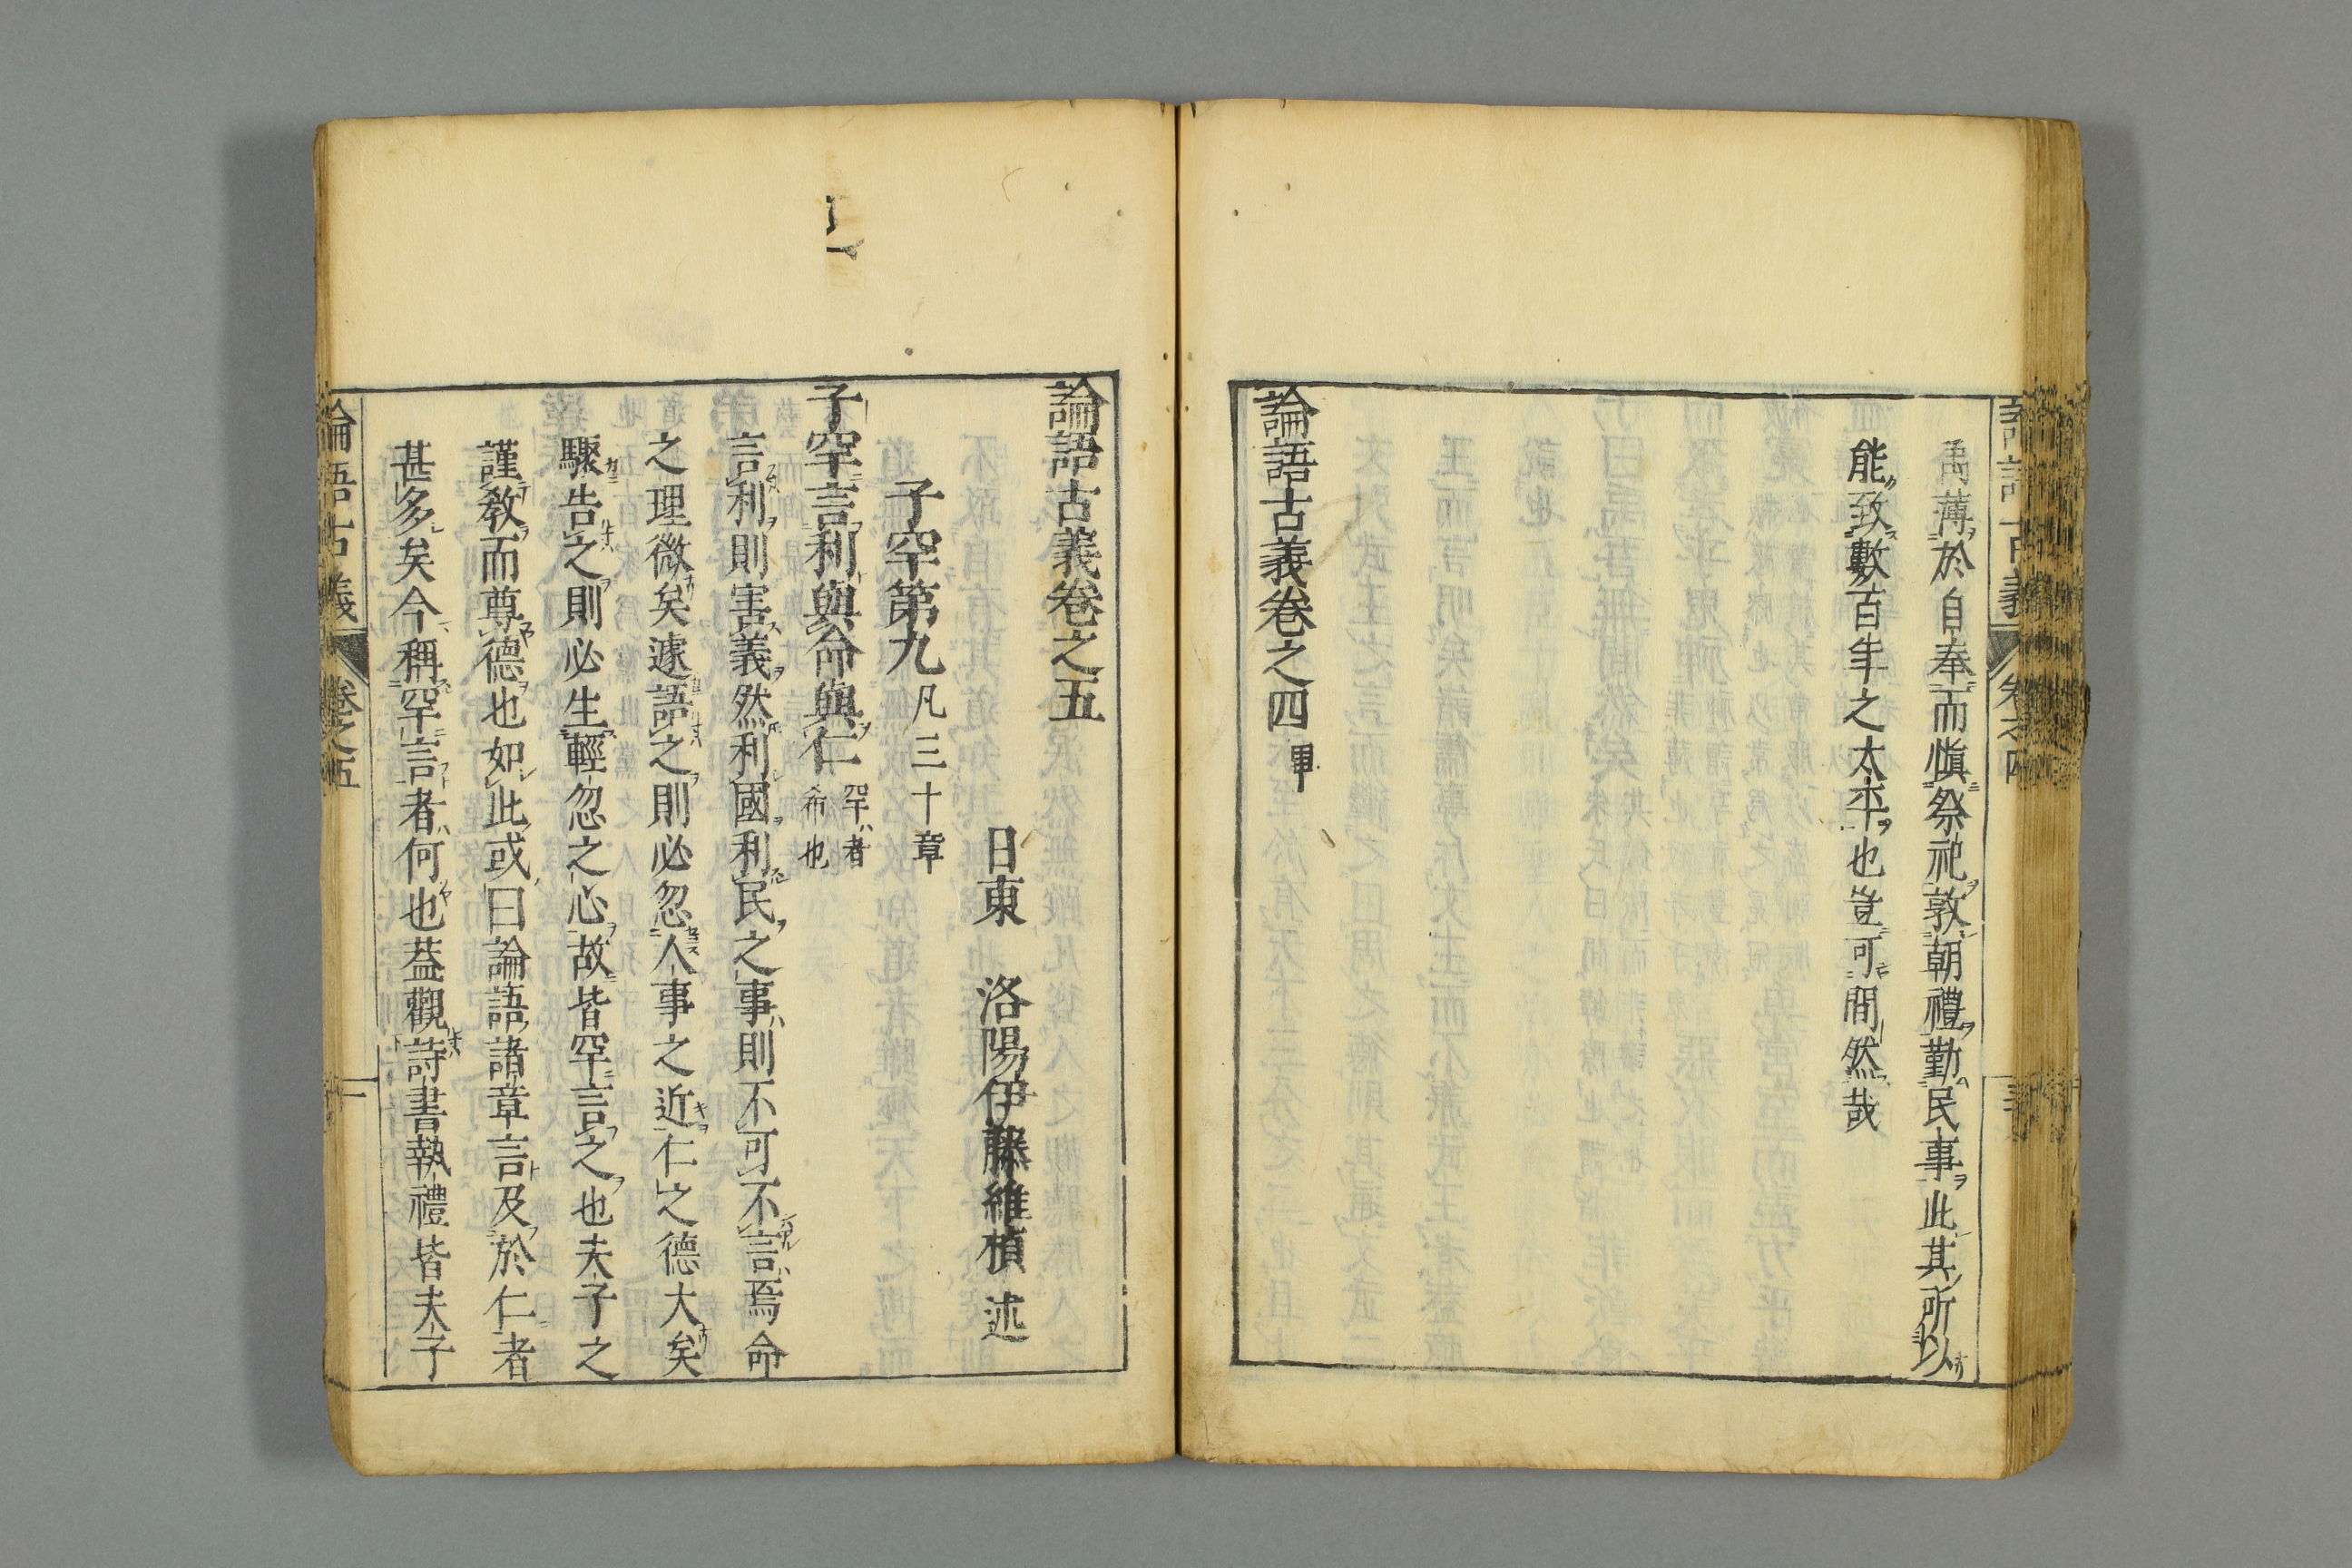 禹薄於自奉而愼祭祀敦朝禮勤民事此其所以
能致數百年之太平也豈可間然哉
論語古義卷之四畢
論語古義卷之五
日東 洛陽伊藤維楨述
子罕第九凡三十章
子罕言利與命與仁罕者希也
言利則害義然利國利民之事則不可不言焉命
之理微矣遽語之則必忽人事之近仁之德大矣
驟告之則必生輕忽之心故皆罕言之也夫子之
謹敎而尊德也如此或曰論語諸章言及於仁者
甚多矣今稱罕言者何也葢觀詩書執禮皆夫子
論語古義 卷之五 一